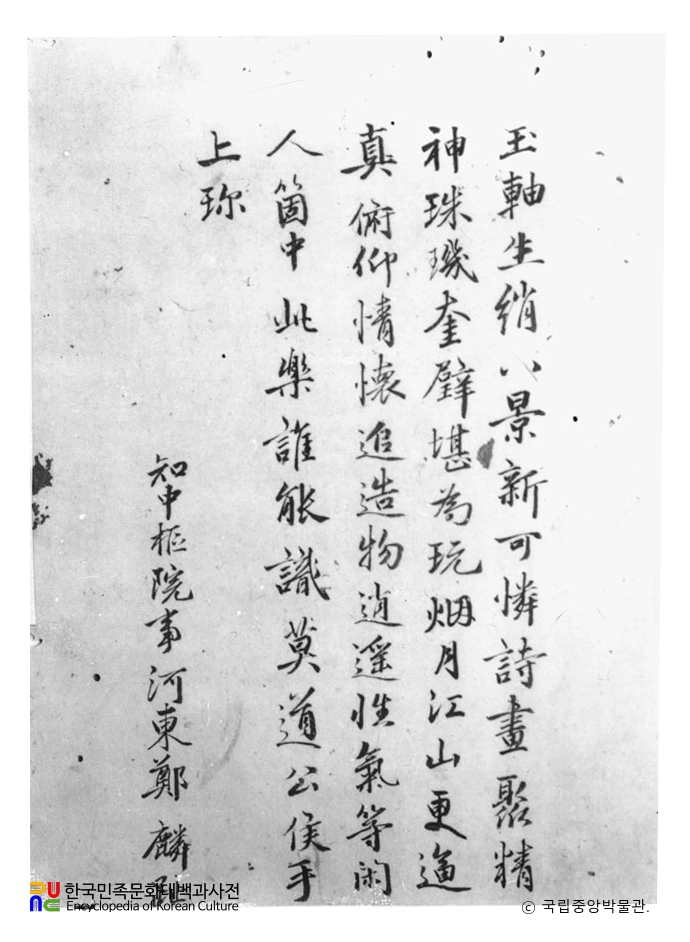 玉軸生綃八景新可憐詩畫聚精
神珠璣奎璧堪為玩烟月江山更逼
真俯仰情懷追造物逍遥性氣等閑
人箇中此樂誰能識莫道公侯手
上珎
知中樞院事河東鄭麟
한국민족문화대백과사전
Encyclopedia of Korean Culture
ⓒ 국립중앙박물관.